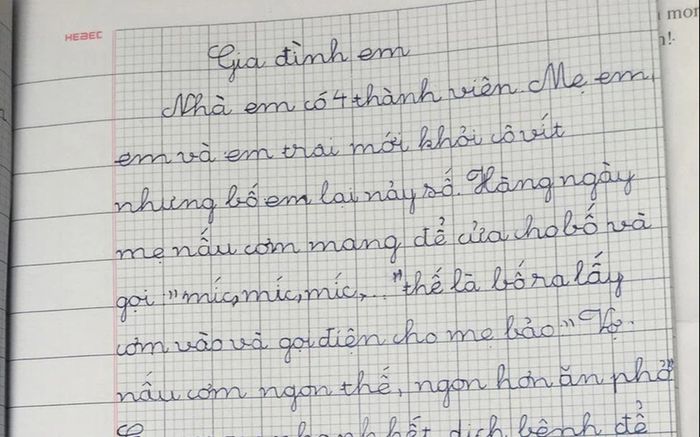 HEBEC
Gia đình em
Nhà em có 4 thành viên. Mẹ em,
em và em trai mới khỏi cô vít
nhưng bố em lại nảy số. Hàng ngày
mẹ nấu cơm mang để cửa cho bố và
gọi "míc, míc, míc,..." thế là bố ra lấy
cơm vào và gọi điện cho mẹ bảo " Vợ
nấu cơm ngon thế, ngon hơn ăn phở"
hết dịch bệnh để